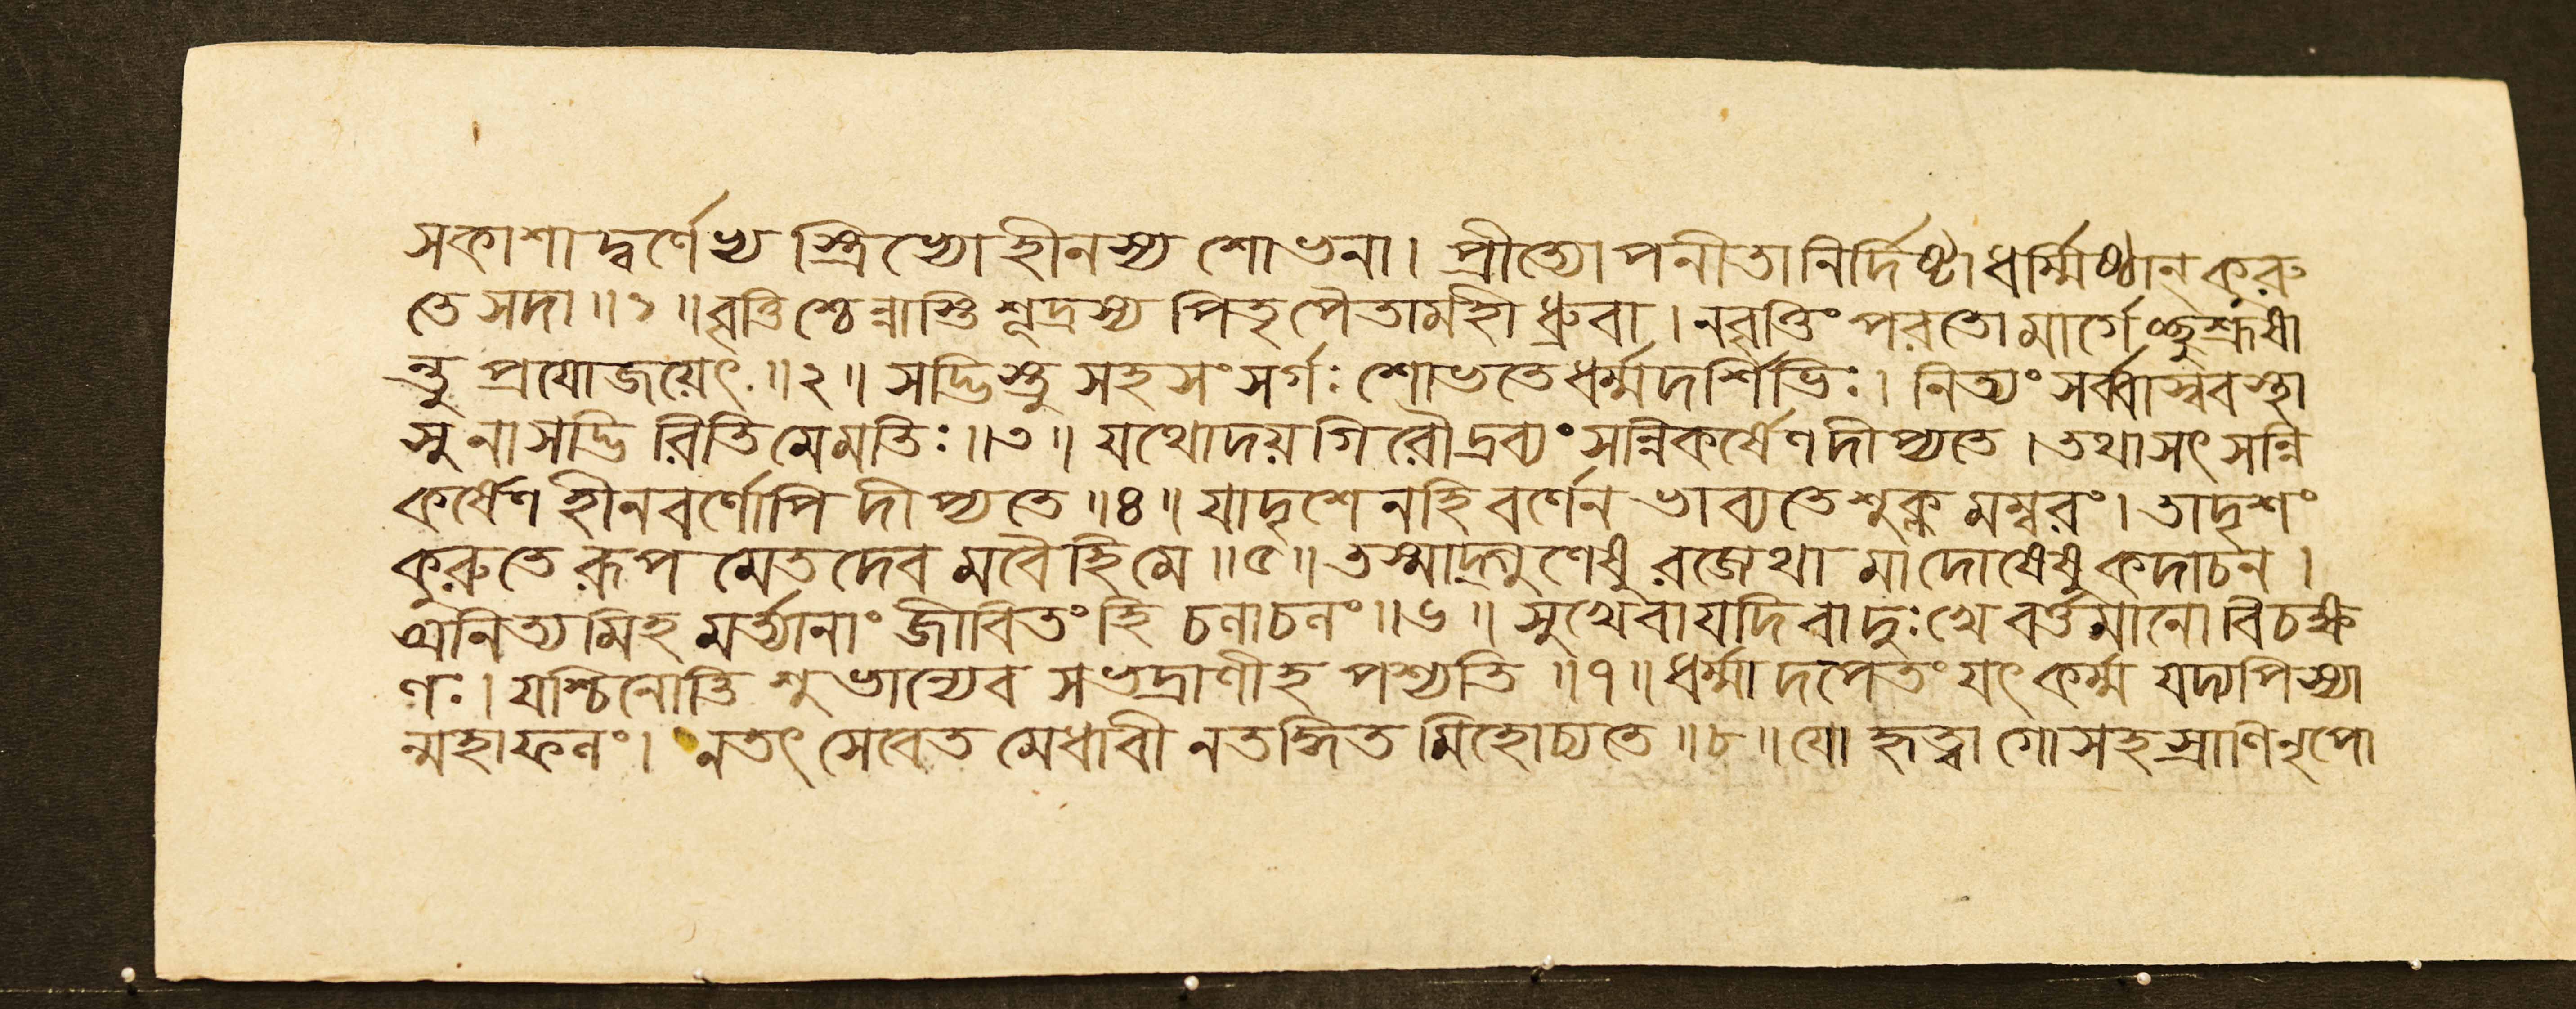 সকাশাদ্বর্ণেভ্য স্ত্রিভ্যোহীনস্য শোভনা। প্রীত্যোপনীতানির্দিষ্টাধর্ম্মিষ্ঠান্ কুরু
তে সদা॥১॥বৃত্তিশ্চেন্নাস্তি শূদ্রস্য পিতৃপৈতামহী ধ্রুবা। নবৃত্তিং পরতোমার্গেচ্ছুশ্রূষা
ন্তু প্রযোজয়েৎ॥২॥ সদ্ভিস্তু সহ সংসর্গঃ শোভতেধর্ম্মদর্শিভিঃ। নিত্যং সর্ব্বাস্ববস্থা
সু নাসদ্ভিরিতিমেমতিঃ॥৩॥ যথোদয়গিরৌদ্রব্যং সন্নিকর্ষেণ দীপ্যতে।তথাসৎসন্নি
কর্ষেণ হীনবর্ণোপি দীপ্যতে॥৪॥ যাদৃশেনহিবর্ণেন ভাব্যতেশুক্লমম্বরং। তাদৃশং
কুরুতে রূপ মেতদেব মবৈহিমে॥৫॥তস্মাদ্গুণেষু রজেথা মাদোষেষু কদাচন।
অনিত্যমিহ মর্ত্যানাং জীবিতং হি চলাচলং॥৬॥ সুখেবাযদি বাদুঃখে বর্ত্তমানো বিচক্ষ
ণঃ। যশ্চিনোতি শুভান্যেব সভদ্রাণীহ পশ্যতি॥৭॥ধর্ম্মাদপেতং যৎকর্ম্ম যদ্যপিস্যা
ন্মহাফলং। নতৎ সেবেত মেধাবী নতদ্ধিতমিহোচ্যতে॥৮॥যো হৃত্বা গোসহস্রাণিনৃপো